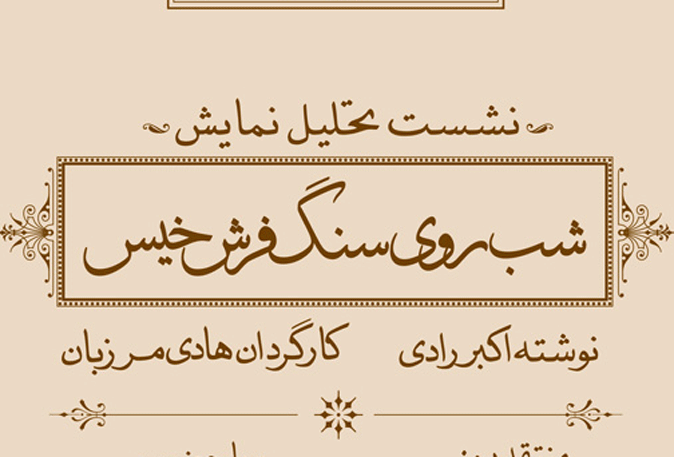 نشست تحلیل نمایش
شب روی سنگ فرش خیس
نوشته اکبر رادی کارگردان هادی مرزبان